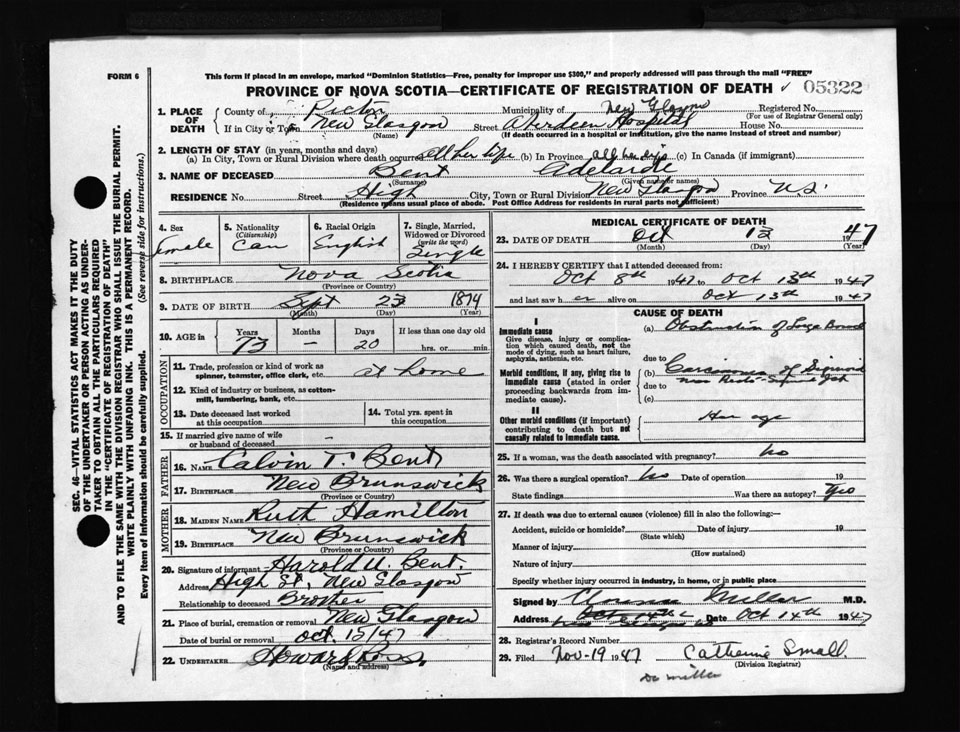 FORM 6
This form if placed in an envelope, marked "Dominion Statistics—Free, penalty for improper use $300," and properly addressed will pass through the mail "FREE"
PROVINCE OF NOVA SCOTIA—CERTIFICATE OF REGISTRATION OF DEATH 05322
SEC. 46—VITAL STATISTICS ACT MAKES IT THE DUTY
OF THE UNDERTAKER OR PERSON ACTING AS UNDER-
TAKER TO OBTAIN ALL THE PARTICULARS REQUIRED
IN THE "CERTIFICATE OF REGISTRATION OF DEATH"
AND TO FILE THE SAME WITH THE DIVISION REGISTRAR WHO SHALL ISSUE THE BURIAL PERMIT.
WRITE PLAINLY WITH UNFADING INK. THIS IS A PERMANENT RECORD.
Every item of information should be carefully supplied. (See reverse side for instructions.)
1. PLACE OF DEATH County of Pictou Municipality of New Glasgow Registered No.
(For use of Registrar General only)
If in City or Town New Glasgow Street Aberdeen Hospital House No.
(Name) (If death occurred in a hospital or institution, give the name instead of street and number)
2. LENGTH OF STAY (in years, months and days)
(a) In City, Town or Rural Division where death occurred all her life (b) In Province all her life (c) In Canada (if immigrant)
3. NAME OF DECEASED Bent Adelaide
(Surname) (Given name or names)
RESIDENCE No. Street High City, Town or Rural Division New Glasgow Province N.S.
(Residence means usual place of abode. Post Office Address for residents in rural parts not sufficient)
4. Sex Female
5. Nationality (Citizenship) Can
6. Racial Origin English
7. Single, Married, Widowed or Divorced (write the word) Single
8. BIRTHPLACE Nova Scotia
(Province or Country)
9. DATE OF BIRTH Sept 23 1874
(Month) (Day) (Year)
10. AGE in Years 73 Months — Days 20 If less than one day old hrs. or min.
OCCUPATION
11. Trade, profession or kind of work as spinner, teamster, office clerk, etc. at home
12. Kind of industry or business, as cotton-mill, lumbering, bank, etc.
13. Date deceased last worked at this occupation
14. Total yrs. spent in this occupation
15. If married give name of wife or husband of deceased —
FATHER
16. NAME Calvin T. Bent
17. BIRTHPLACE New Brunswick
(Province or Country)
MOTHER
18. MAIDEN NAME Ruth Hamilton
19. BIRTHPLACE New Brunswick
(Province or Country)
20. Signature of informant Harold U. Bent.
Address High St. New Glasgow
Relationship to deceased Brother
21. Place of burial, cremation or removal New Glasgow
Date of burial or removal Oct. 15/47
22. UNDERTAKER Howard Ross
(Name and address)
MEDICAL CERTIFICATE OF DEATH
23. DATE OF DEATH Oct 13 1947
(Month) (Day) (Year)
24. I HEREBY CERTIFY that I attended deceased from:
Oct 8th 1947 to Oct 13th 1947
and last saw her alive on Oct 13th 1947
CAUSE OF DEATH
I
Immediate cause
Give disease, injury or complication which caused death, not the mode of dying, such as heart failure, asphyxia, asthenia, etc.
(a) Obstruction of Large Bowel
due to
Morbid conditions, if any, giving rise to immediate cause (stated in order proceeding backwards from immediate cause).
(b) Carcinoma of Sigmoid
due to near Recto-Sigmoid
(c)
II
Other morbid conditions (if important) contributing to death but not causally related to immediate cause.
Her age
25. If a woman, was the death associated with pregnancy? No
26. Was there a surgical operation? No Date of operation 19
State findings Was there an autopsy? Yes
27. If death was due to external causes (violence) fill in also the following:—
Accident, suicide or homicide? Date of injury 19
(State which)
Manner of injury
(How sustained)
Nature of injury
Specify whether injury occurred in industry, in home, or in public place
Signed by Clarence Miller M.D.
Address New Glasgow Date Oct 14th 1947
28. Registrar's Record Number
29. Filed Nov-19 1947 Catherine Small.
(Division Registrar)
Dr Miller